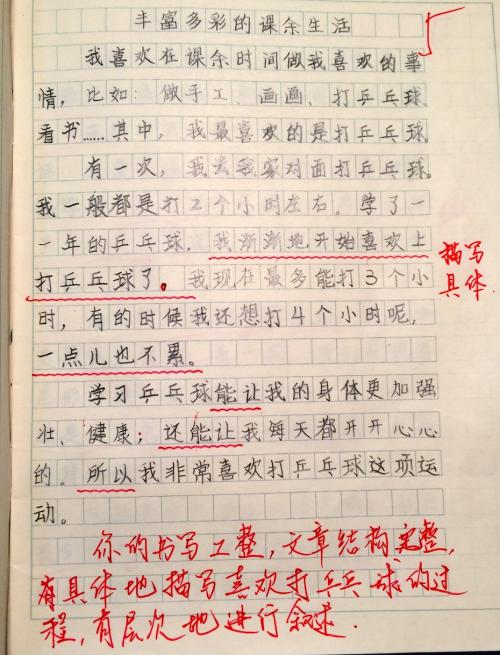 丰富多彩的课余生活
我喜欢在课余时间做我喜欢的事
情，比如：做手工、画画、打乒乓球
看书……其中，我最喜欢的是打乒乓球。
有一次，我去我家对面打乒乓球。
我一般都是打2个小时左右。学了一
一年的乒乓球，我渐渐地开始喜欢上
打乒乓球了。我现在最多能打3个小
时，有的时候我还想打4个小时呢，
一点儿也不累。
学习乒乓球能让我的身体更加强
壮、健康；还能让我每天都开开心心
的。所以我非常喜欢打乒乓球这项运
动。
描写
具体.
你的书写工整，文章结构完整，
有具体地描写喜欢打乒乓球的过
程，有层次地进行叙述.